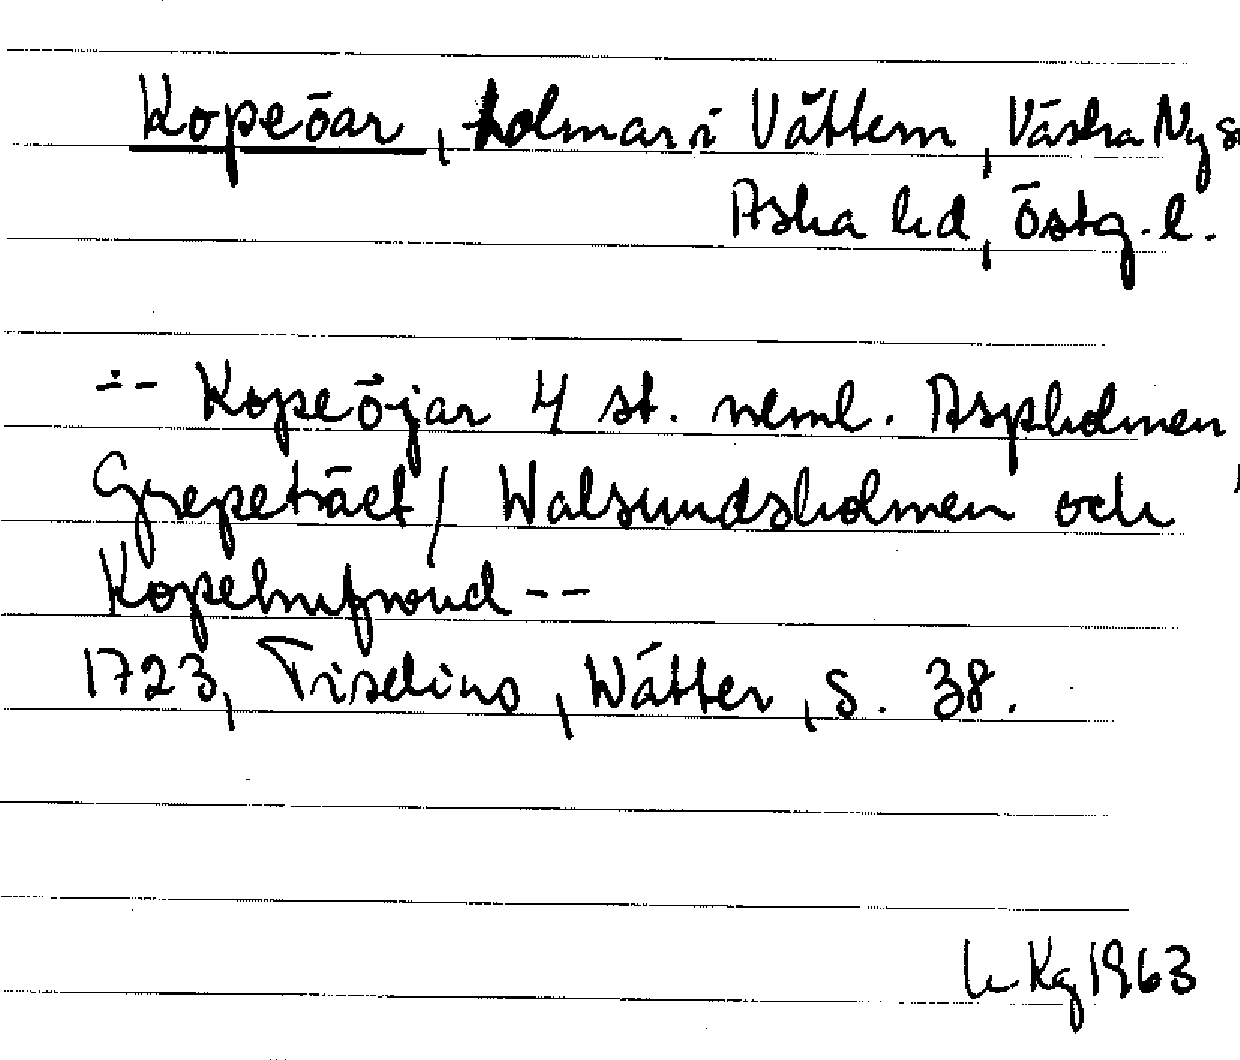 Kopeöar, holmar i Vättern, Västra Ny s
Aska hd, Östg. l.
-:- Kopeöjar 4 st. neml. Aspholmen
Grepeträet / Walsundsholmen och
Kopehufwud --
1723, Tiselius, Wätter, s. 38.
Kg 1963